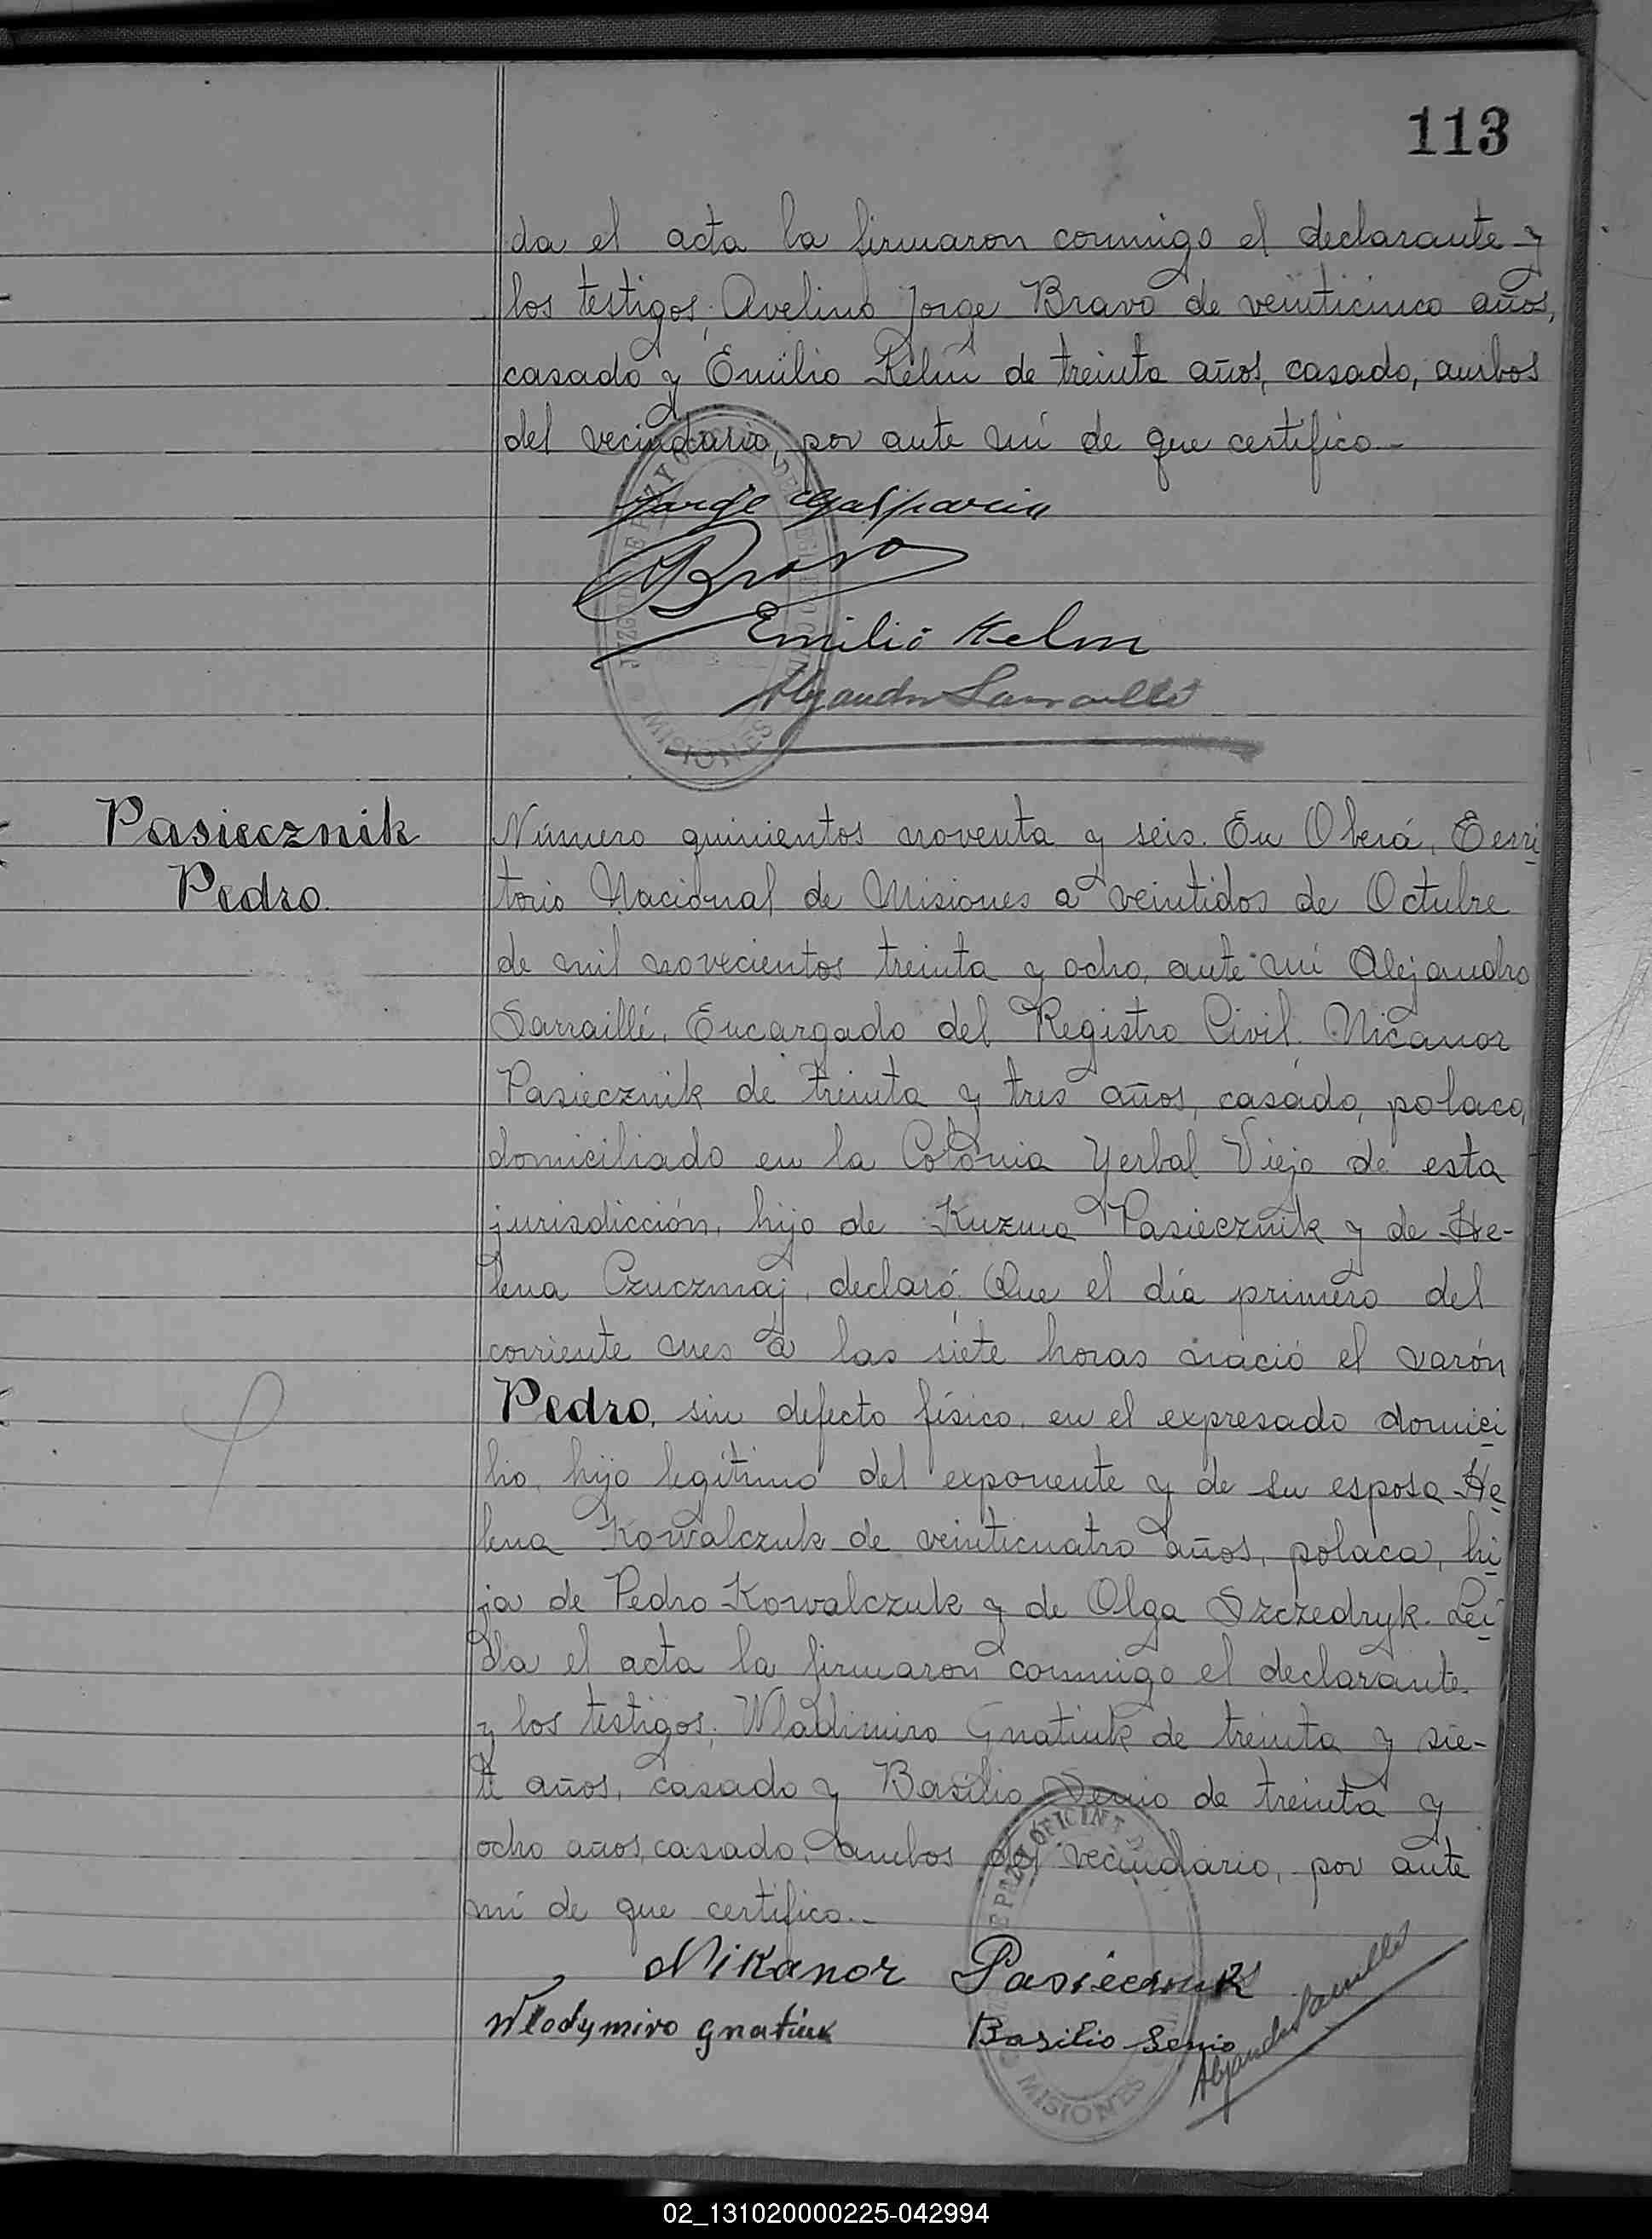 113
da el acta la firmaron conmigo el declarante y
los testigos; Avelino Jorge Bravo de veinticinco años,
casado y Emilio Kelm de treinta años, casado, ambos
del vecindario, por ante mí de que certifico.-
Jorge
Bravo
Emilio Kelm
Alejandro Sarraillé
MISIONES
Pasiecznik
Pedro.
Número quinientos noventa y seis. En Oberá, Terri
torio Nacional de Misiones a veintidos de Octubre
de mil novecientos treinta y ocho, ante mí Alejandro
Sarraillé, Encargado del Registro Civil. Nicanor
Pasiecznik de treinta y tres años, casado, polaco,
domiciliado en la Colonia Yerbal Viejo de esta
jurisdicción, hijo de Kuzma Pasiecznik y de He-
lena Czuczmaj, declaró: Que el día primero del
corriente mes a las siete horas nació el varón
Pedro, sin defecto físico, en el expresado domici
lio, hijo legítimo del exponente y de su esposa He
lena Kowalczuk de veinticuatro años, polaca, hi
ja de Pedro Kowalczuk y de Olga Szczedryk. Leí
da el acta la firmaron conmigo el declarante
y los testigos; Wladimiro Gnatiuk de treinta y sie-
te años, casado y Basilio Senio de treinta y
ocho años, casado, ambos del vecindario, por ante
mí de que certifico.-
Nikanor Pasiecznik
Wlodymiro Gnatiuk Basilio Senio
Alejandro Sarraillé
MISIONES
02_131020000225-042994